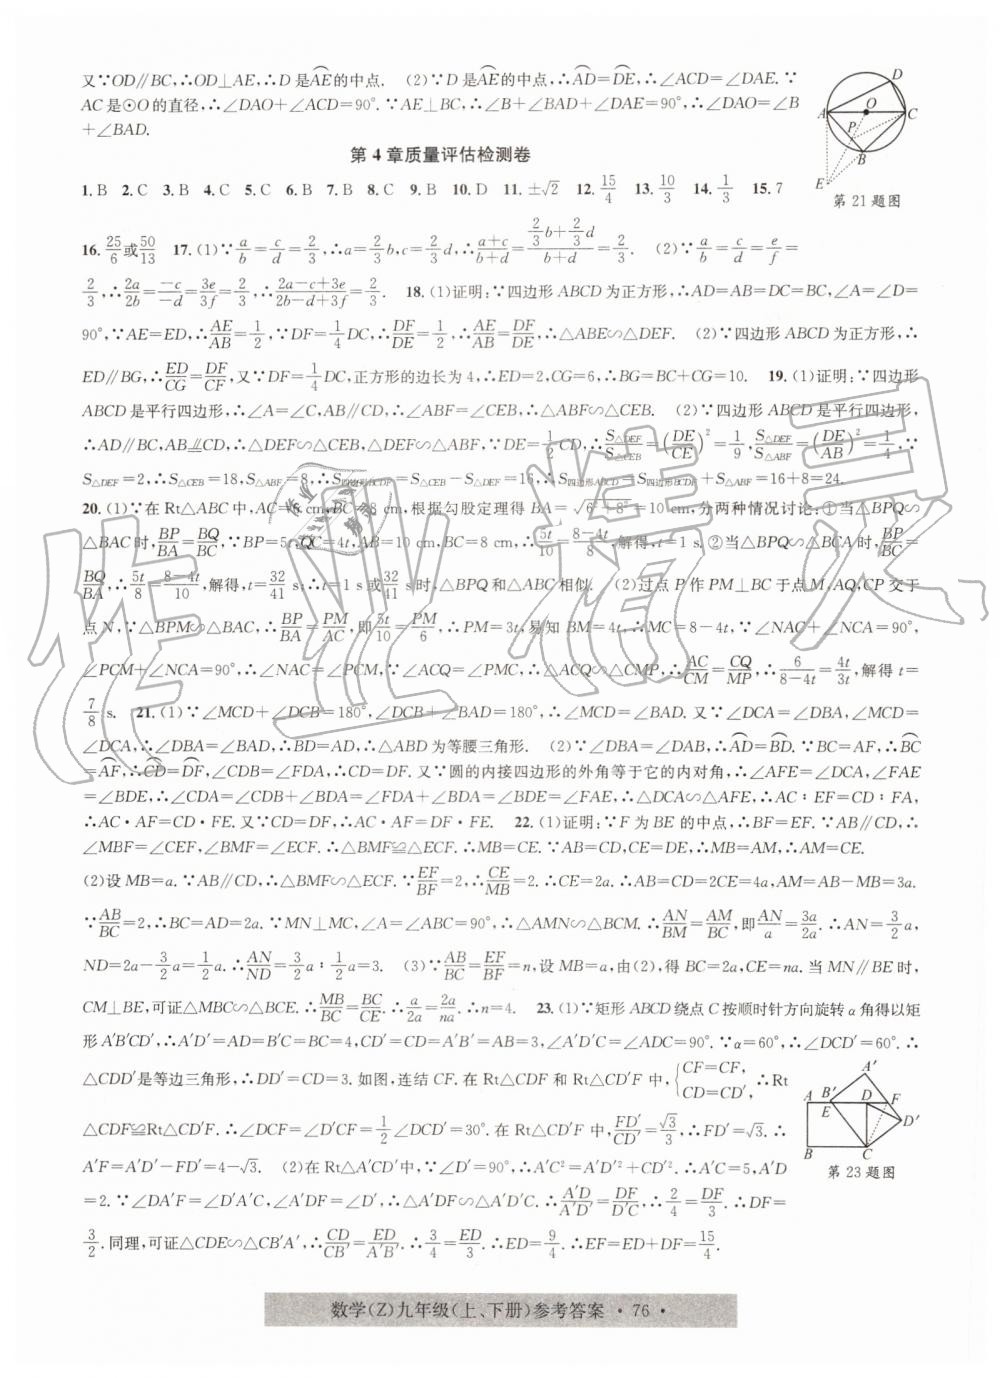 又∵OD∥BC,∴OD⊥AE,∴D是AE的中点. (2)∵D是AE的中点,∴AD=DE,∴∠ACD=∠DAE. ∵
AC是⊙O的直径,∴∠DAO+∠ACD=90°. ∵AE⊥BC,∴∠B+∠BAD+∠DAE=90°,∴∠DAO=∠B
+∠BAD.
D
A
O
C
P
B
E
第21题图
第4章质量评估检测卷
1. B 2. C 3. B 4. C 5. C 6. B 7. B 8. C 9. B 10. D 11. ±√2 12. 15/4 13. 10/3 14. 1/3 15. 7
16. 25/6或50/13 17. (1)∵a/b=c/d=2/3,∴a=2/3b,c=2/3d,∴(a+c)/(b+d)=(2/3b+2/3d)/(b+d)=2/3. (2)∵a/b=c/d=e/f=
2/3,∴2a/2b=-c/-d=3e/3f=2/3,∴(2a-c+3e)/(2b-d+3f)=2/3. 18. (1)证明:∵四边形ABCD为正方形,∴AD=AB=DC=BC,∠A=∠D=
90°,∵AE=ED,∴AE/AB=1/2,∵DF=1/4DC,∴DF/DE=1/2,∴AE/AB=DF/DE,∴△ABE∽△DEF. (2)∵四边形ABCD为正方形,∴
ED∥BG,∴ED/CG=DF/CF,又∵DF=1/4DC,正方形的边长为4,∴ED=2,CG=6,∴BG=BC+CG=10. 19. (1)证明:∵四边形
ABCD是平行四边形,∴∠A=∠C,AB∥CD,∴∠ABF=∠CEB,∴△ABF∽△CEB. (2)∵四边形ABCD是平行四边形,
∴AD∥BC,AB⫽CD,∴△DEF∽△CEB,△DEF∽△ABF,∵DE=1/2CD,∴S△DEF/S△CEB=(DE/CE)²=1/9,S△DEF/S△ABF=(DE/AB)²=1/4,∵
S△DEF=2,∴S△CEB=18,S△ABF=8,∴S四边形BCDF=S△CEB-S△DEF=16,∴S四边形ABCD=S四边形BCDF+S△ABF=16+8=24.
20. (1)∵在Rt△ABC中,AC=6 cm,BC=8 cm,根据勾股定理得BA=√(6²+8²)=10 cm,分两种情况讨论:①当△BPQ∽
△BAC时,BP/BA=BQ/BC,∵BP=5t,QC=4t,AB=10 cm,BC=8 cm,∴5t/10=(8-4t)/8,解得,t=1 s,②当△BPQ∽△BCA时,BP/BC=
BQ/BA,∴5t/8=(8-4t)/10,解得,t=32/41 s;∴t=1 s或32/41 s时,△BPQ和△ABC相似. (2)过点P作PM⊥BC于点M,AQ,CP交于
点N,∵△BPM∽△BAC,∴BP/BA=PM/AC,即5t/10=PM/6,∴PM=3t,易知BM=4t,∴MC=8-4t,∵∠NAC+∠NCA=90°,
∠PCM+∠NCA=90°,∴∠NAC=∠PCM,∵∠ACQ=∠PMC,∴△ACQ∽△CMP,∴AC/CM=CQ/MP,∴6/(8-4t)=4t/3t,解得t=
7/8 s. 21. (1)∵∠MCD+∠DCB=180°,∠DCB+∠BAD=180°,∴∠MCD=∠BAD. 又∵∠DCA=∠DBA,∠MCD=
∠DCA,∴∠DBA=∠BAD,∴BD=AD,∴△ABD为等腰三角形. (2)∵∠DBA=∠DAB,∴AD=BD. ∵BC=AF,∴BC
=AF,∴CD=DF,∠CDB=∠FDA,∴CD=DF. 又∵圆的内接四边形的外角等于它的内对角,∴∠AFE=∠DCA,∠FAE
=∠BDE,∴∠CDA=∠CDB+∠BDA=∠FDA+∠BDA=∠BDE=∠FAE,∴△DCA∽△AFE,∴AC∶EF=CD∶FA,
∴AC·AF=CD·FE. 又∵CD=DF,∴AC·AF=DF·FE. 22. (1)证明:∵F为BE的中点,∴BF=EF. ∵AB∥CD,∴
∠MBF=∠CEF,∠BMF=∠ECF. ∴△BMF≌△ECF. ∴MB=CE. ∵AB=CD,CE=DE,∴MB=AM,∴AM=CE.
(2)设MB=a. ∵AB∥CD,∴△BMF∽△ECF. ∵EF/BF=2,∴CE/MB=2. ∴CE=2a. ∴AB=CD=2CE=4a,AM=AB-MB=3a.
∵AB/BC=2,∴BC=AD=2a. ∵MN⊥MC,∠A=∠ABC=90°,∴△AMN∽△BCM. ∴AN/BM=AM/BC,即AN/a=3a/2a. ∴AN=3/2a,
ND=2a-3/2a=1/2a. ∴AN/ND=3/2a∶1/2a=3. (3)∵AB/BC=EF/BF=n,设MB=a,由(2),得BC=2a,CE=na. 当MN∥BE时,
CM⊥BE,可证△MBC∽△BCE. ∴MB/BC=BC/CE. ∴a/2a=2a/na. ∴n=4. 23. (1)∵矩形ABCD绕点C按顺时针方向旋转α角得以矩
形A′B′CD′,∴A′D′=AD=B′C=BC=4,CD′=CD=A′B′=AB=3,∠A′D′C=∠ADC=90°. ∵α=60°,∴∠DCD′=60°. ∴
△CDD′是等边三角形,∴DD′=CD=3. 如图,连结CF. 在Rt△CDF和Rt△CD′F中,{CF=CF, CD=CD′, ∴Rt
△CDF≌Rt△CD′F. ∴∠DCF=∠D′CF=1/2∠DCD′=30°. 在Rt△CD′F中,FD′/CD′=√3/3,∴FD′=√3. ∴
A′F=A′D′-FD′=4-√3. (2)在Rt△A′CD′中,∵∠D′=90°,∴A′C²=A′D′²+CD′². ∴A′C=5,A′D
=2. ∵∠DA′F=∠D′A′C,∠A′DF=∠D′,∴△A′DF∽△A′D′C. ∴A′D/A′D′=DF/D′C. ∴2/4=DF/3. ∴DF=
3/2. 同理,可证△CDE∽△CB′A′,∴CD/CB′=ED/A′B′. ∴3/4=ED/3. ∴ED=9/4. ∴EF=ED+DF=15/4.
A′
A
B′
E
D
F
D′
B
C
第23题图
数学(Z)九年级(上、下册)参考答案 · 76 ·
作业精灵